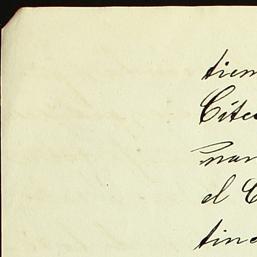 tiem
Cite
nar
el C
tinc